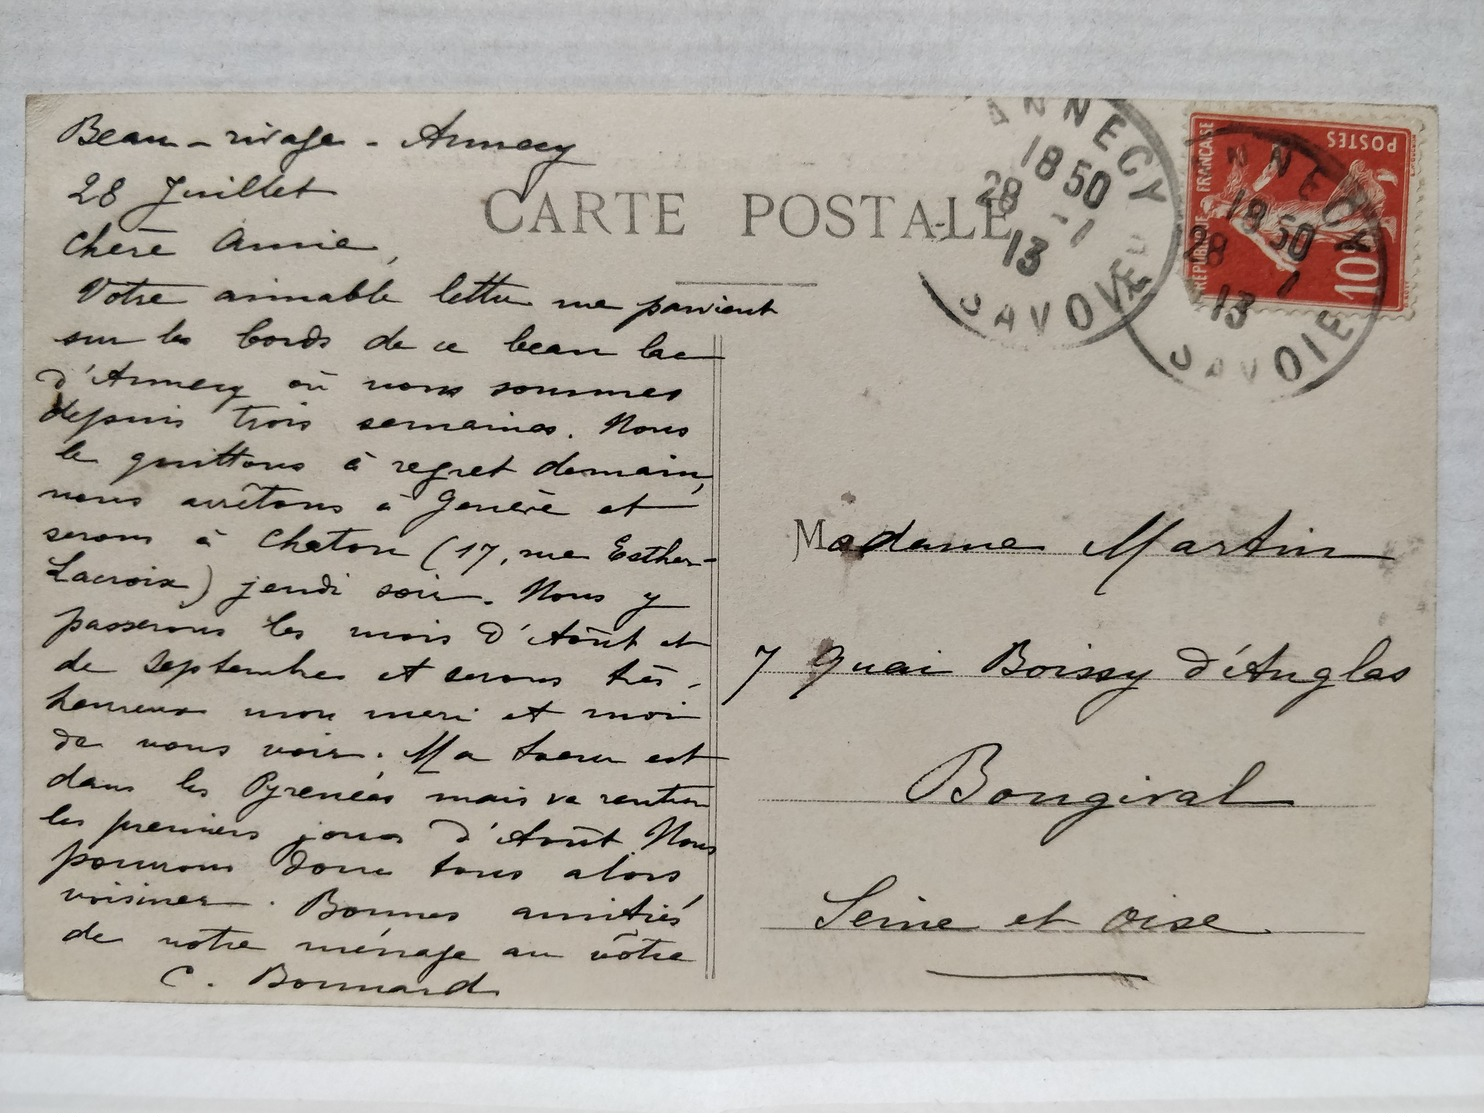 Beau-rivage - Annecy
28 Juillet
Chère Annie,
Votre aimable lettre me parvient
sur les bords de ce beau lac
d'Annecy où nous sommes
depuis trois semaines. Nous
le quittons à regret demain,
nous arrêtons à Genève et
serons à Chatou (17, rue Esther-
Lacroix) jeudi soir. Nous y
passerons les mois d'Août et
de Septembre et serons très
heureux mon mari et moi
de vous voir. Ma soeur est
dans les Pyrenées mais va rentrer
les premiers jours d'Août. Nous
pourrons donc tous alors
voisiner. Bonnes amitiés
de notre ménage au vôtre
C. Bonnard
CARTE POSTALE
ANNECY
18 50
28 -7
13
SAVOIE
REPUBLIQUE FRANÇAISE
POSTES
10c
ANNECY
18 50
28 7
13
SAVOIE
Madame Martin
7 Quai Boissy d'Anglas
Bougival
Seine et Oise